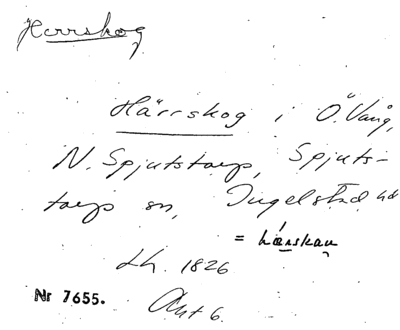 Herrskog
Härrskog i Ö. Vång,
N. Spjutstorp, Spjuts-
torp sn, Ingelstad hd
= härskau
Lh. 1826
Nr 7655. Akt 6.